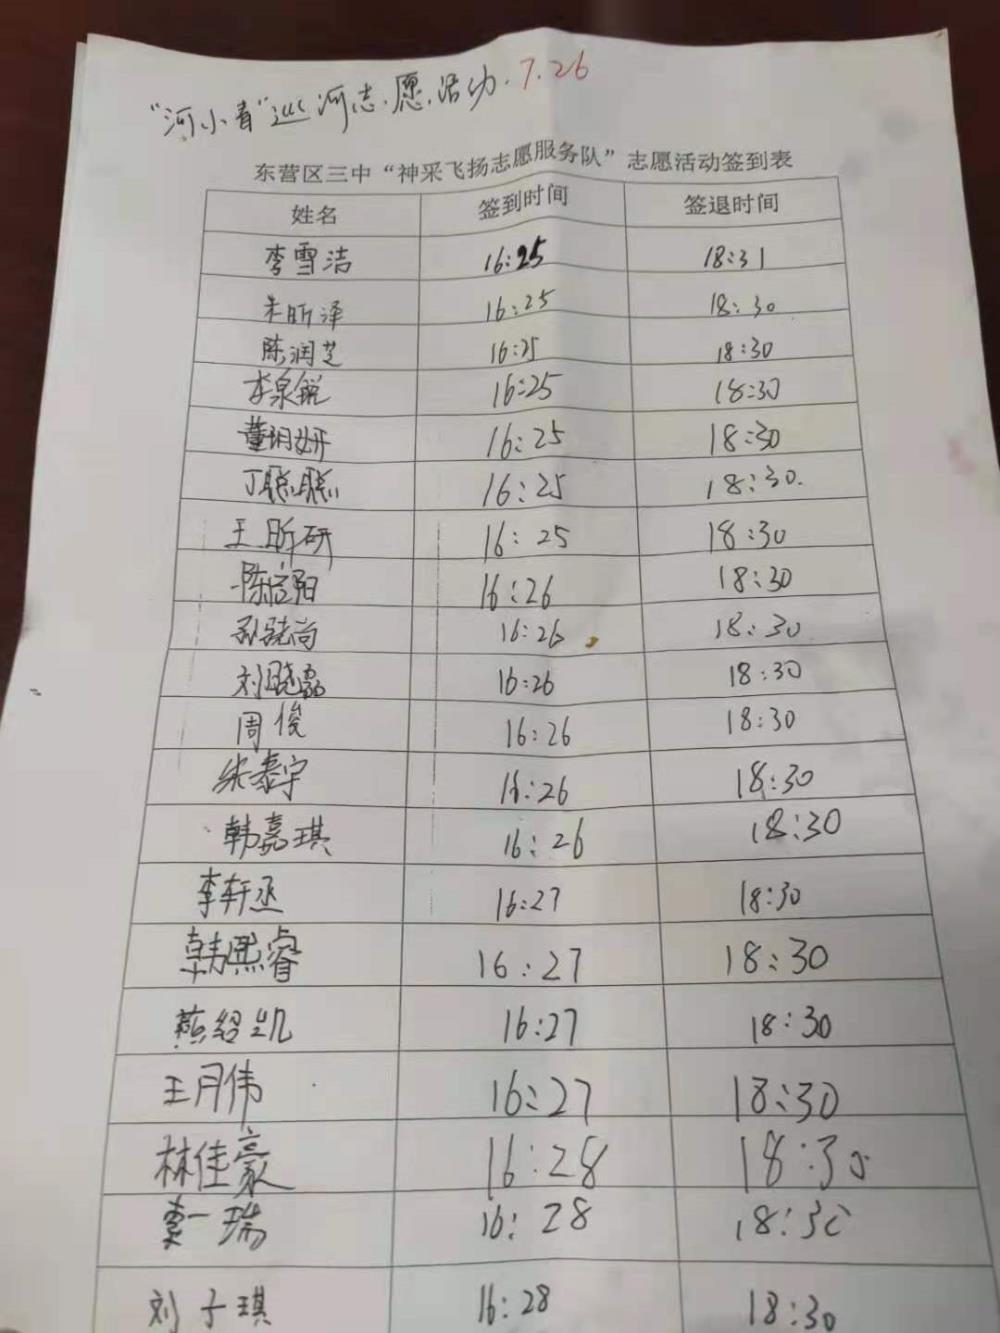 "河小青"巡河志愿活动.7.26
东营区三中“神采飞扬志愿服务队”志愿活动签到表
姓名 签到时间 签退时间
李雪洁 16:25 18:31
朱昕泽 16:25 18:30
陈润芝 16:25 18:30
李泉锐 16:25 18:30
董玥妍 16:25 18:30
丁聪聪 16:25 18:30.
王昕研 16:25 18:30
16:26 18:30
孙骁尚 16:26 18:30
刘晓磊 16:26 18:30
周俊 16:26 18:30
张泰宇 16:26 18:30
韩嘉琪 16:26 18:30
李轩丞 16:27 18:30
韩熙睿 16:27 18:30
16:27 18:30
王月伟 16:27 18:30
林佳豪 16:28 18:30
16:28 18:30
刘子琪 16:28 18:30